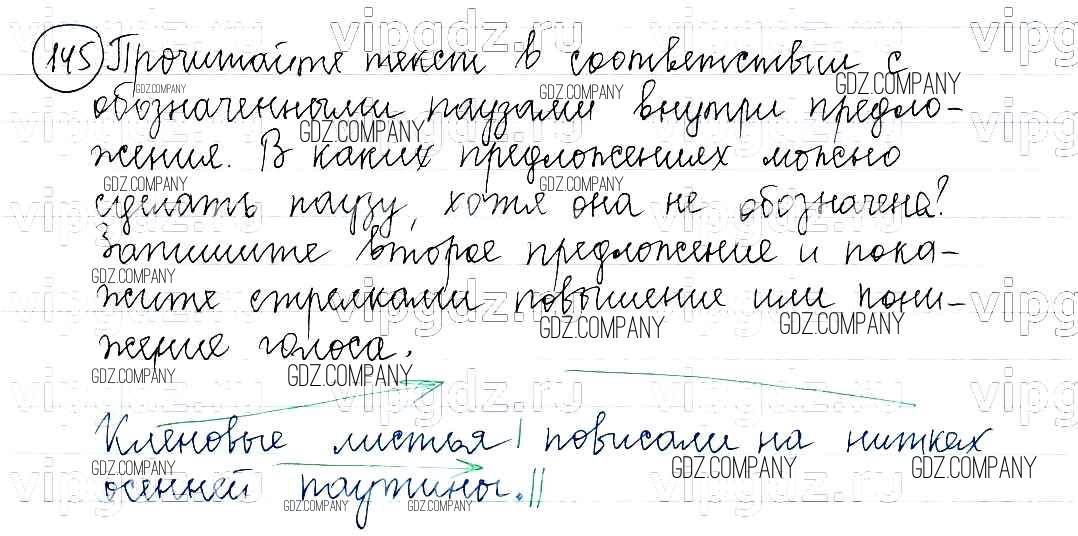 145 Прочитайте текст в соответствии с
обозначенными паузами внутри предло-
жения. В каких предложениях можно
сделать паузу, хотя она не обозначена?
Запишите второе предложение и пока-
жите стрелками повышение или пони-
жение голоса.
Кленовые листья | повисали на нитках
осенней паутины. ||
vipgdz.ru
GDZ.COMPANY